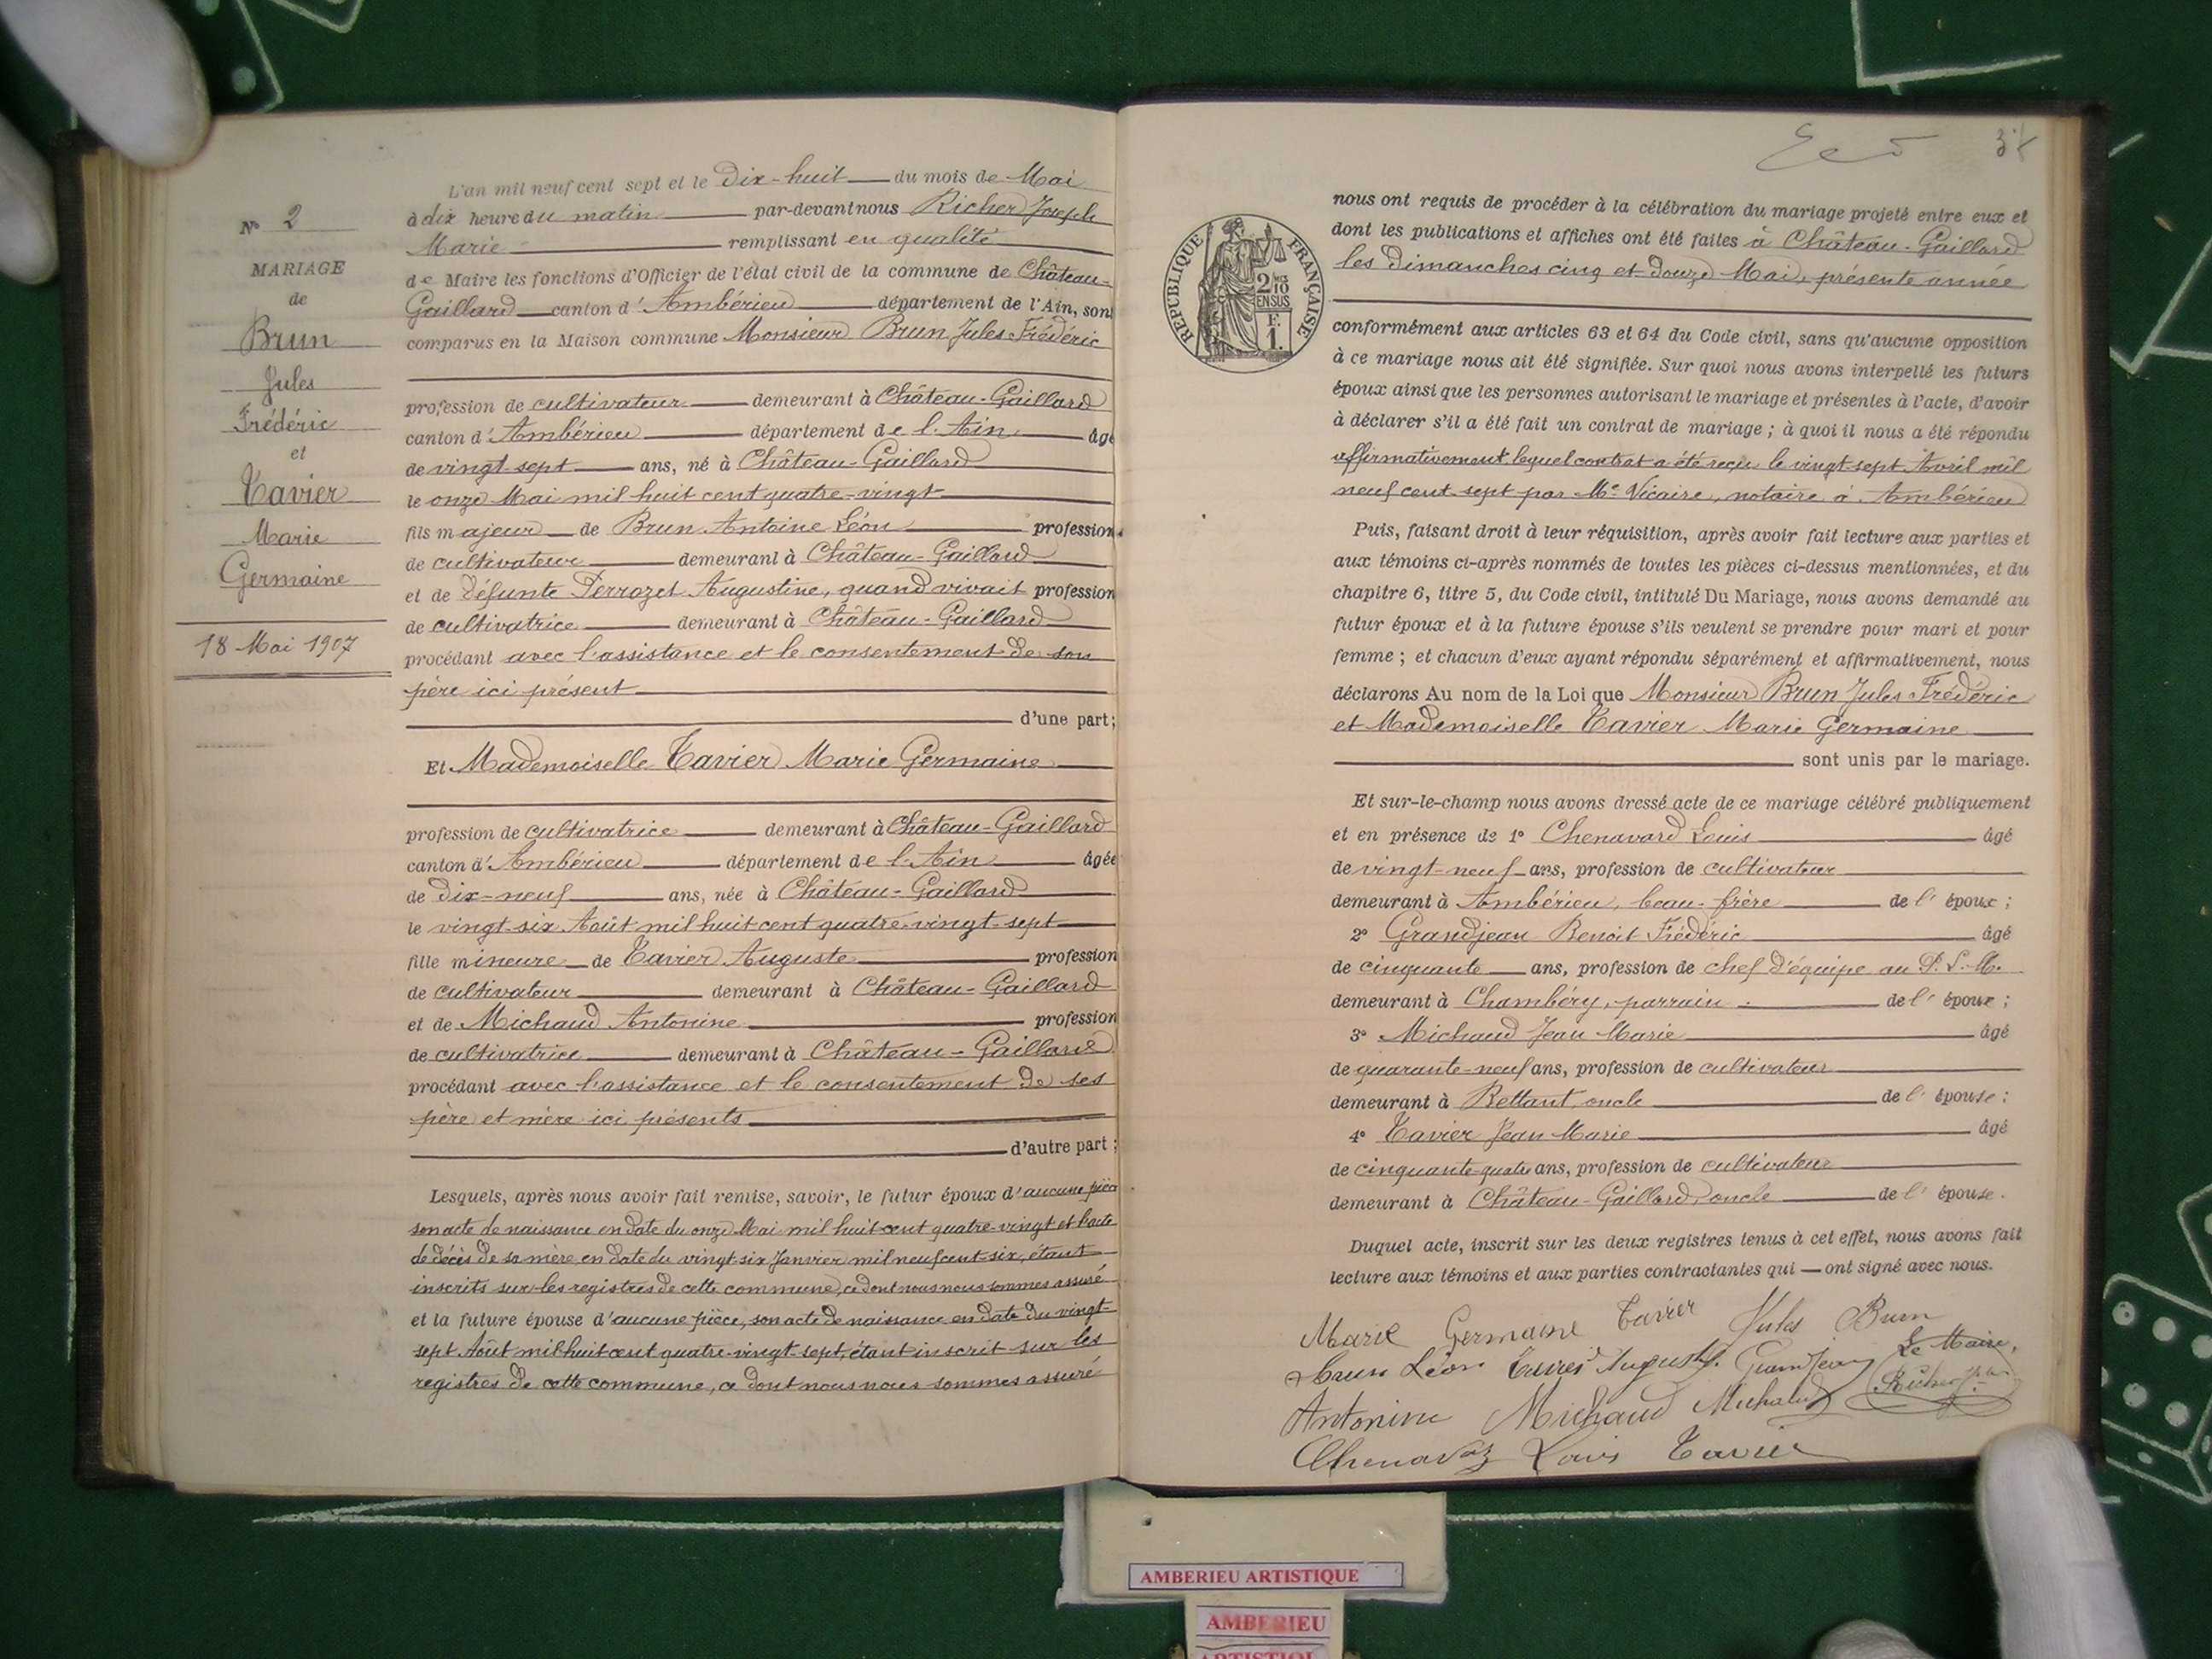 N° 2
MARIAGE
de
Brun
Jules
Frédéric
et
Tavier
Marie
Germaine
18 Mai 1907
L'an mil neuf cent sept et le Dix-huit du mois de Mai
à dix heure du matin par-devant nous Richer Joseph
Marie remplissant en qualité
de Maire les fonctions d'Officier de l'état civil de la commune de Château-
Gaillard canton d'Ambérieu département de l'Ain, sont
comparus en la Maison commune Monsieur Brun Jules Frédéric
profession de cultivateur demeurant à Château-Gaillard
canton d'Ambérieu département de l'Ain âgé
de vingt-sept ans, né à Château-Gaillard
le onze Mai mil huit cent quatre-vingt
fils majeur de Brun Antoine Léon profession
de cultivateur demeurant à Château-Gaillard
et de défunte Perrozet Augustine, quand vivait profession
de cultivatrice demeurant à Château-Gaillard
procédant avec l'assistance et le consentement de son
père ici présent
d'une part;
Et Mademoiselle Tavier Marie Germaine
profession de cultivatrice demeurant à Château-Gaillard
canton d'Ambérieu département de l'Ain âgée
de dix-neuf ans, née à Château-Gaillard
le vingt-six Août mil huit cent quatre-vingt-sept
fille mineure de Tavier Auguste profession
de cultivateur demeurant à Château-Gaillard
et de Michaud Antonine profession
de cultivatrice demeurant à Château-Gaillard
procédant avec l'assistance et le consentement de ses
père et mère ici présents
d'autre part;
Lesquels, après nous avoir fait remise, savoir, le futur époux d'aucune pièce
son acte de naissance en date du onze Mai mil huit cent quatre-vingt et l'acte
de décès de sa mère en date du vingt-six Janvier mil neuf cent six, étant
inscrits sur les registres de cette commune, ce dont nous nous sommes assuré
et la future épouse d'aucune pièce, son acte de naissance en date du vingt-
sept Août mil huit cent quatre-vingt-sept, étant inscrit sur les
registres de cette commune, ce dont nous nous sommes assuré
RÉPUBLIQUE FRANÇAISE
2/10
EN SUS
F.
1.
nous ont requis de procéder à la célébration du mariage projeté entre eux et
dont les publications et affiches ont été faites à Château-Gaillard
les dimanches cinq et douze Mai, présente année
conformément aux articles 63 et 64 du Code civil, sans qu'aucune opposition
à ce mariage nous ait été signifiée. Sur quoi nous avons interpellé les futurs
époux ainsi que les personnes autorisant le mariage et présentes à l'acte, d'avoir
à déclarer s'il a été fait un contrat de mariage ; à quoi il nous a été répondu
affirmativement lequel contrat a été reçu le vingt-sept Avril mil
neuf cent sept par Me Vicaire, notaire à Ambérieu
Puis, faisant droit à leur réquisition, après avoir fait lecture aux parties et
aux témoins ci-après nommés de toutes les pièces ci-dessus mentionnées, et du
chapitre 6, titre 5, du Code civil, intitulé Du Mariage, nous avons demandé au
futur époux et à la future épouse s'ils veulent se prendre pour mari et pour
femme ; et chacun d'eux ayant répondu séparément et affirmativement, nous
déclarons Au nom de la Loi que Monsieur Brun Jules Frédéric
et Mademoiselle Tavier Marie Germaine
sont unis par le mariage.
Et sur-le-champ nous avons dressé acte de ce mariage célébré publiquement
et en présence de 1° Chenavard Louis âgé
de vingt-neuf ans, profession de cultivateur
demeurant à Ambérieu, beau-frère de l'époux ;
2° Grandjean Benoit Frédéric âgé
de cinquante ans, profession de chef d'équipe au P.L.M.
demeurant à Chambéry, parrain de l'époux ;
3° Michaud Jean Marie âgé
de quarante-neuf ans, profession de cultivateur
demeurant à Bettant, oncle de l'épouse ;
4° Tavier Jean Marie âgé
de cinquante-quatre ans, profession de cultivateur
demeurant à Château-Gaillard, oncle de l'épouse.
Duquel acte, inscrit sur les deux registres tenus à cet effet, nous avons fait
lecture aux témoins et aux parties contractantes qui ont signé avec nous.
Marie Germaine Tavier Jules Brun
Brun Léon Tavier Auguste Grandjean Le Maire,
Antonine Michaud Michaud Richer
Chenavaz Louis Tavier
AMBERIEU ARTISTIQUE
AMBERIEU
ARTISTIQU